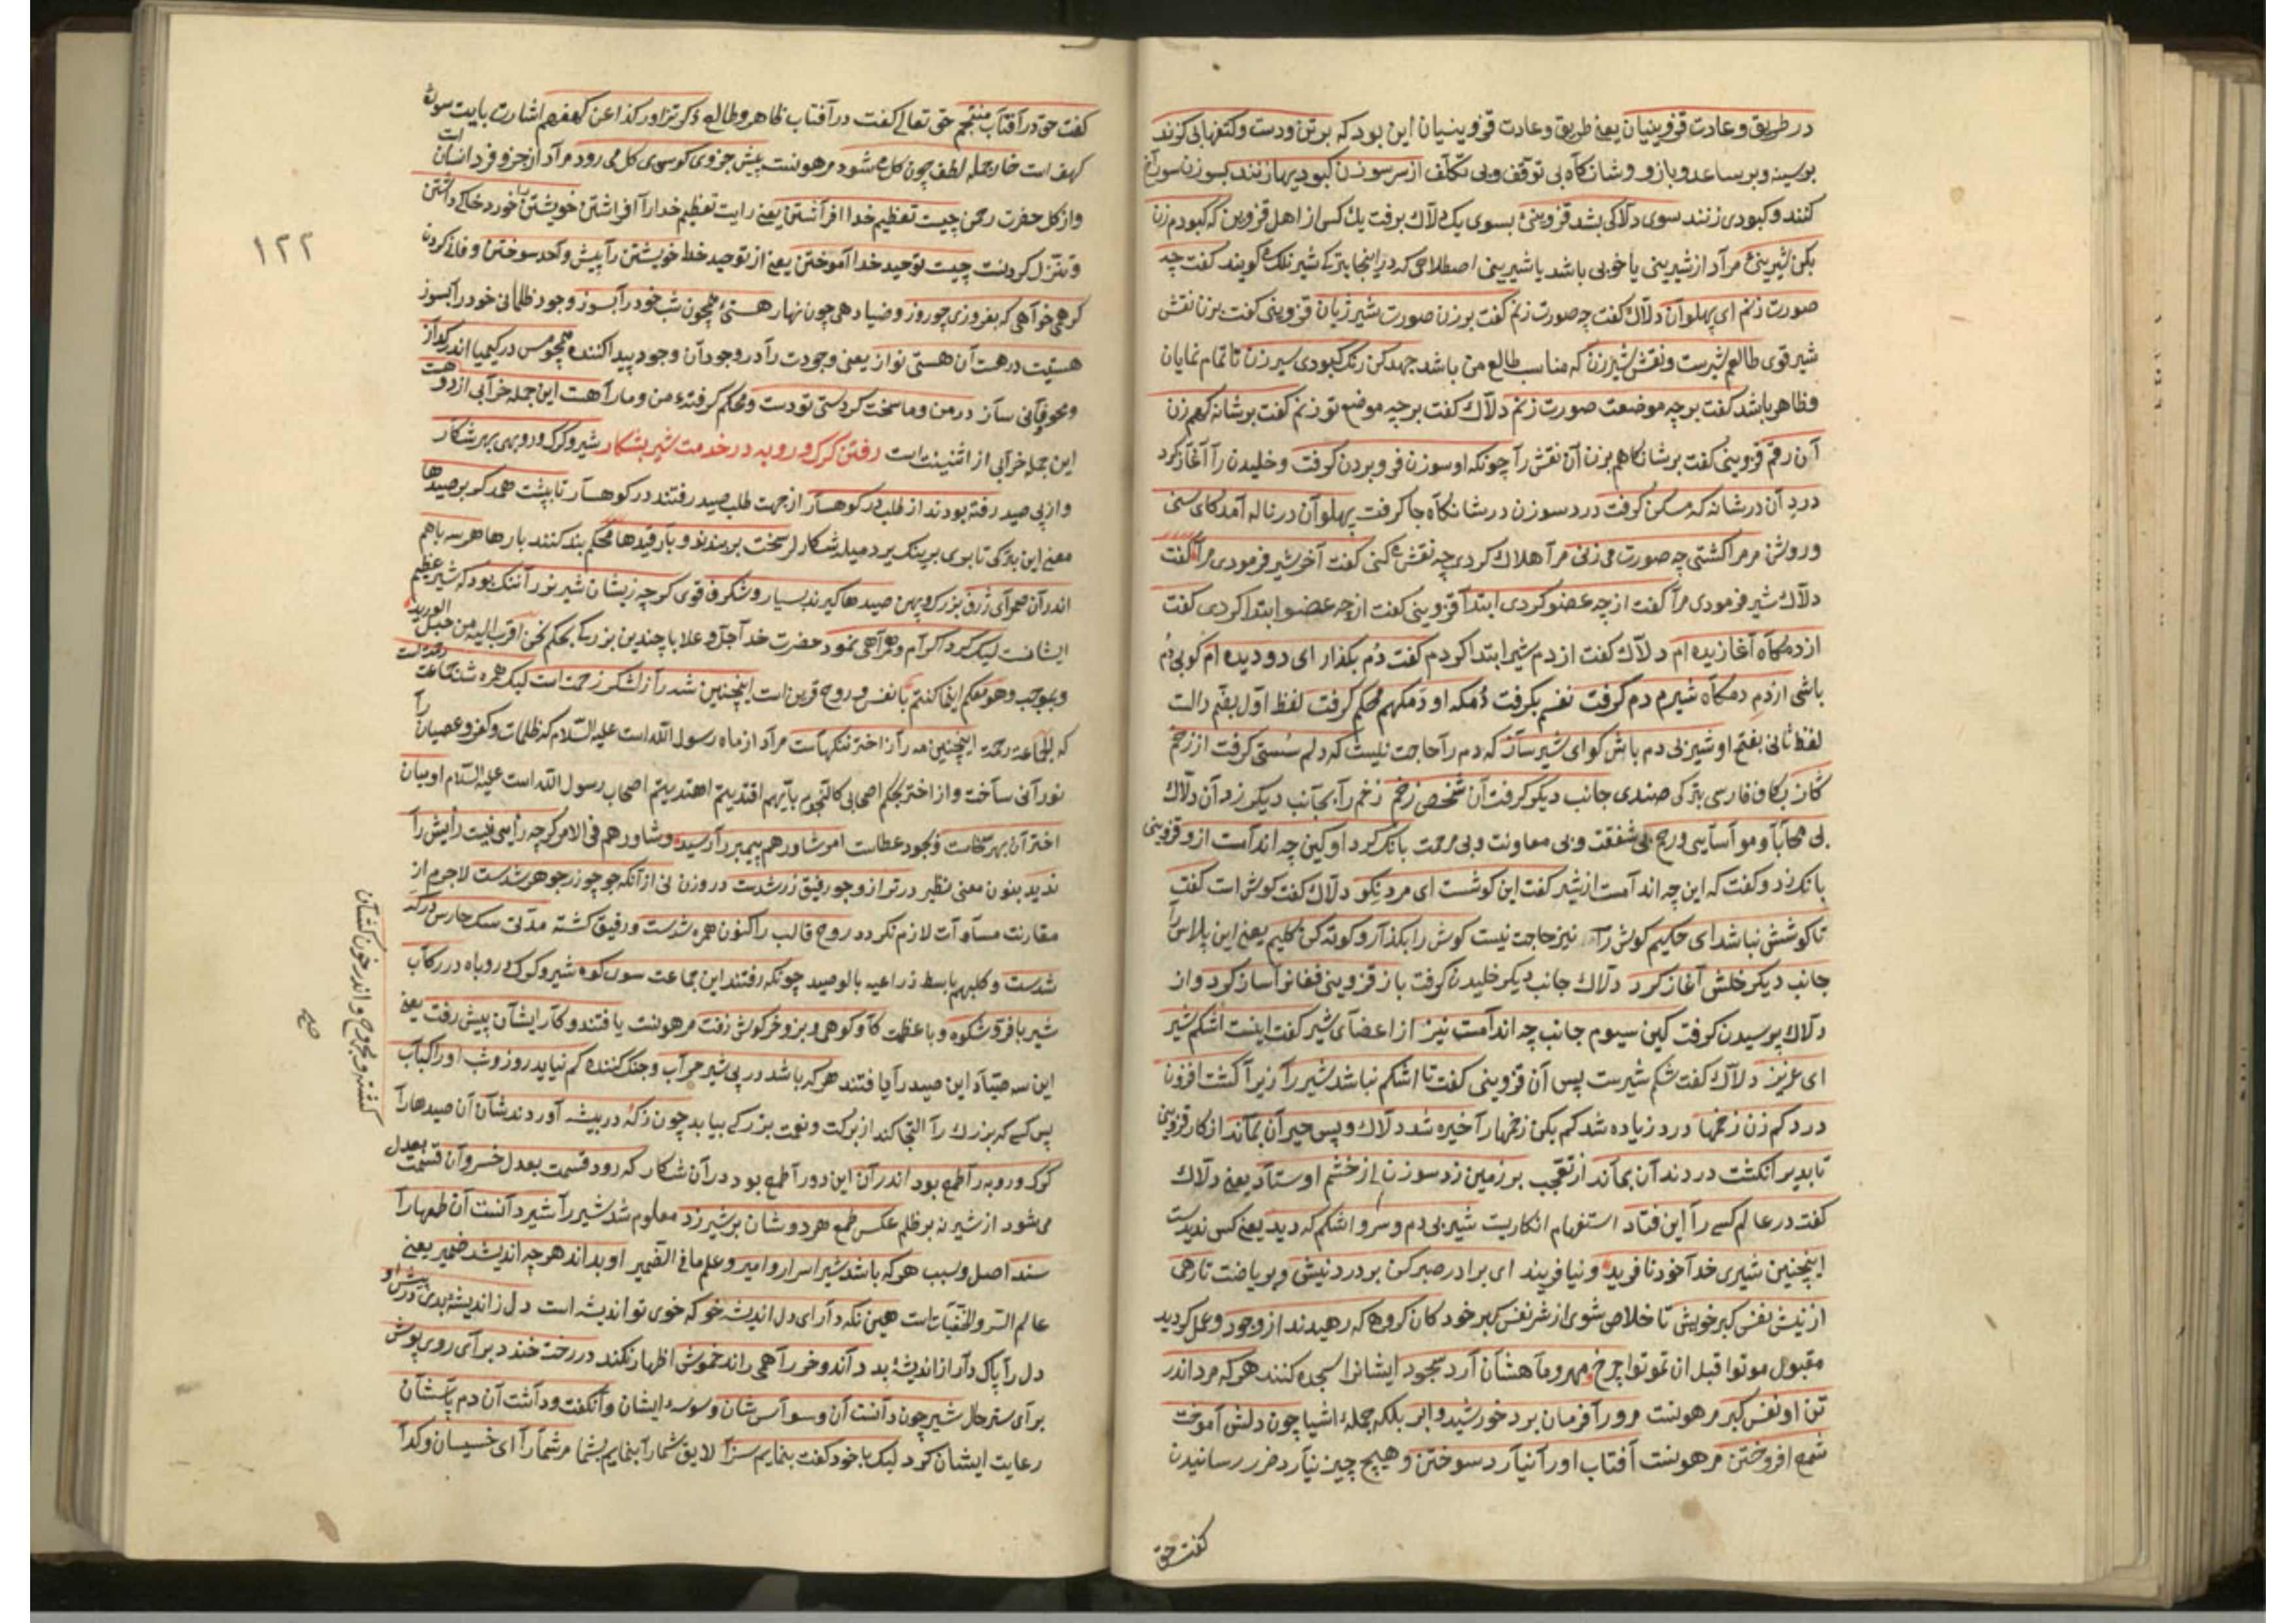 در طریق و عادت قزوینیان یعنی طریق و عادت قزوینیان این بود که بر تن و دست و کتفها بی گزند
بر سینه و بر ساعد و بازو و شانگاه بی توقف و بی تکلف از سر سوزن کبودیها زنند بسوزن سوراخ
کنند و کبودی زنند سوی دلاکی بشد قزوینی بسوی یک دلاک برفت یک کس از اهل قزوین که کبودم زن
بکن شیرینی مراد از شیرینی یا خوبی باشد یا شیرینی اصطلاحی که در اینجا بترکی شیرنلک گویند گفت چه
صورت زنم ای پهلوان دلاک گفت چه صورت زنم گفت بر زن صورت شیر ژیان قزوینی گفت بزن نقش
شیر قوی طالعم شیرست و نقش شیر زن که مناسب طالع من باشد جهد کن رنگ کبودی سیر زن تا تمام نمایان
و ظاهر باشد گفت بر چه موضعت صورت زنم دلاک گفت بر چه موضع تو زنم گفت بر شانه گهم زن
آن رقم قزوینی گفت بر شانگاهم بزن آن نقش را چونکه او سوزن فرو بردن گرفت و خلیدن را آغاز کرد
درد آن در شانه گه مسکن گرفت درد سوزن در شانگاه جا گرفت پهلوان در ناله آمد کای سنی
و روشن مر مرا کشتی چه صورت می زنی مرا هلاک کردی چه نقش می کنی گفت آخر شیر فرمودی مرا گفت
دلاک شیر فرمودی مرا گفت از چه عضو کردی ابتدا قزوینی گفت از چه عضو ابتدا کردی گفت
از دمگاه آغازیده ام دلاک گفت از دم شیر ابتدا کردم گفت دم بگذار ای دو دیده ام گو بی دم
باشی از دم دمگاه شیرم دم گرفت نفسم بگرفت دمگه او دمگهم محکم گرفت لفظ اول بضم دالت
لفظ ثانی بفتح او شیر بی دم باش گو ای شیرساز که دم را حاجت نیست که دلم سستی گرفت از زخم
گاز بکاف فارسی بترکی صندی جانب دیگر گرفت آن شخص زخم زخم را بجانب دیگر زد آن دلاک
بی محابا و مواسایی و رحم بی شفقت و بی معاونت و بی مرحمت بانگ کرد او کین چه اندامست ازو قزوینی
بانک زد و گفت که این چه اندامست از شیر گفت این گوشست ای مرد نکو دلاک گفت گوش است گفت
تا گوشش نباشد ای حکیم گوش را نیز حاجت نیست گوش را بگذار و کوته کن گلیم یعنی این پلاس را
جانب دیگر خلش آغاز کرد دلاک جانب دیگر خلیدن گرفت باز قزوینی فغانرا ساز کرد و از
دلاک پرسیدن گرفت کین سیوم جانب چه اندامست نیز از اعضای شیر گفت اینست اشکم شیر
ای عزیز دلاک گفت شکم شیرست پس آن قزوینی گفت تا اشکم نباشد شیر را زیرا گشت افزون
درد کم زن زخمها درد زیاده شد کم بکن زخمها را خیره شد دلاک و پس حیران بماند از کار قزوینی
تا بدیر انگشت در دندان بماند از تعجب بر زمین زد سوزن از خشم اوستاد یعنی دلاک
گفت در عالم کسی را این فتاد استفهام انکاریست شیر بی دم و سر و اشکم که دید یعنی کس ندیدست
اینچنین شیری خدا خود نافرید و نیافریند ای برادر صبر کن بر درد نیش و بریاضت تا رهی
از نیش نفس گبر خویش تا خلاص شوی از شر نفس گبر خود کان گروهی که رهیدند از وجود و عمل کردید
مقبول موتوا قبل ان تموتوا چرخ و مهر و ماهشان آرد سجود ایشانرا سجده کنند هر که مرد اندر
تن او نفس گبر مرهونست مرورا فرمان برد خورشید و ابر بلکه جمله اشیا چون دلش آموخت
شمع افروختن مرهونست آفتاب اورا نیارد سوختن و هیچ چیز نیارد ضرر رسانیدن
گفت حق
۱۲۲
گفت حق در آفتاب منتجم حق تعالی گفت در آفتاب ظاهر و طالع ذکر تزاور کذا عن کهفهم اشارت بایت سوره
کهف است خار جمله لطف چون گل می شود مرهونست پیش جزوی کو سوی کل می رود مراد از جزو فرد انسان
و از کل حضرت رحمن چیست تعظیم خدا افراشتن یعنی رایت تعظیم خدارا افراشتن خویشتن را خوار و خاکی داشتن
و تنزل کردنست چیست توحید خدا آموختن یعنی از توحید خط خویشتن را پیش واحد سوختن و فانی کردن
گر همی خواهی که بفروزی چو روز و ضیا دهی چون نهار هستی همچون شب خود را بسوز وجود ظلمانی خود را بسوز
هستیت در هست آن هستی نواز یعنی وجودت را در وجود آن وجود پیدا کننده همچو مس در کیمیا اندر گداز
و محو و فانی ساز در من و ما سخت کردستی تو دست و محکم گرفته من و ما را هست این جمله خرابی از دو هست
این جمله خرابی از اثنینیت است رفتن گرگ و روبه در خدمت شیر بشکار شیر و گرگ و روبهی بهر شکار
و از پی صید رفته بودند از طلب در کوهسار از جهت طلب صید رفتند در کوهسار تا بپشت همدگر بر صیدها
معنی این بترکی تا بوی برینک یردمیله شکارلر سخت بربندند و بار قیدها محکم بند کنند بارها هر سه باهم
اندر آن صحرای ژرف بزرگ و پهن صیدها گیرند بسیار و شگرف قوی گرچه زیشان شیر نر را ننگ بود که شیر عظیم
ایشانست لیک کرد اکرام و همراهی نمود حضرت خدا جل و علا با چندین بزرگی بحکم نحن اقرب الیه من حبل الورید
و بموجب و هو معکم اینما کنتم با نفس و روح قرین است اینچنین شه را ز لشکر زحمت است لیک همره شد جماعت رحمتست
که الجماعة رحمة اینچنین مه را ز اختر ننگهاست مراد از ماه رسول الله است علیه السلام که ظلمات و کفر و عصیان را
نورانی ساخت و از اختر بحکم اصحابی کالنجوم بایهم اقتدیتم اهتدیتم اصحاب رسول الله است علیه السلام او میان
اختران بهر سخاست و بجود عطاست امر شاورهم پیمبر را رسید و شاورهم فی الامر گرچه رأیی نیست رأیش را
ندید بنون معنی نظیر در ترازو جو رفیق زر شدست در وزن نی از آنکه جو چو زر جوهر شدست لاجرم از
مقارنت مساوات لازم نگردد روح قالب را کنون همره شدست و رفیق گشته مدتی سگ حارس درگه
شدست و کلبهم باسط ذراعیه بالوصید چونکه رفتند این جماعت سوی کوه شیر و گرگ و روباه در رکاب
شیر با فر و شکوه و با عظمت گاو کوهی و بز و خرگوش زفت مرهونست یافتند و کار ایشان پیش رفت یعنی
این سه صیاد این صید را یافتند هر که باشد در پی شیر حراب و جنگ کننده کم نیاید روز و شب او را کباب
پس کسی که بزرگ را التجا کند از برکت و نعمت بزرگی بیابد چون ز که در بیشه آوردندشان آن صیدها را
گرگ و روبه را طمع بود اندر آن این دو را طمع بود در آن شکار که رود قسمت بعدل خسروان قسمت بعدل
می شود از شیر نه بر ظلم عکس طمع هر دوشان بر شیر زد معلوم شد شیر را شیر دانست آن طمعها را
سند اصل و سبب هر که باشد شیر اسرار و امیر و علم ما فی الضمیر او بداند هر چه اندیشد ضمیر یعنی
عالم السر و الخفیات است هین نگه دار ای دل اندیشه خو که خوی تو اندیشه است دل ز اندیشه بدی در پیش او
دل را پاک دار از اندیشه بد داند و خر را همی راند خموش اظهار نکند در رخت خندد برای روی پوش
برای ستر حال شیر چون دانست آن وسواسشان و وسوسه ایشان وانگفت و داشت آن دم پاسشان
رعایت ایشان کرد لیک با خود گفت بنمایم سزا لایق شما را بنمایم بشما مر شما را ای خسیسان و گدا
کشته و مجروح و اندر خون کشان
صح